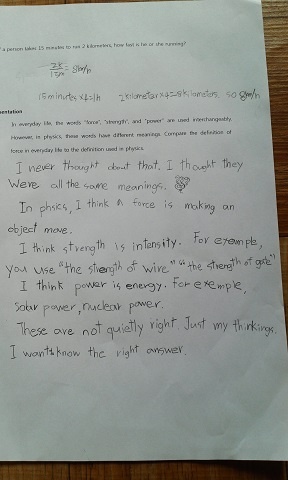 f a person takes 15 minutes to run 2 kilometers, how fast is he or she running?
= 8km/h
15 minutes x4=1h 2kilometer x4=8kilometers. so 8km/h
entation
In everyday life, the words "force", "strength", and "power" are used interchangeably.
However, in physics, these words have different meanings. Compare the definition of
force in everyday life to the definition used in physics.
I never thought about that, I thought they
Were all the same meanings.
In phsics, I think a force is making an
object move.
I think strength is intensity. For example,
you use "the strength of wire" "the strength of gate"
I think power is energy. For exemple,
solar power, nuclear power.
These are not quietly right. Just my thinkings.
I want to know the right answer.